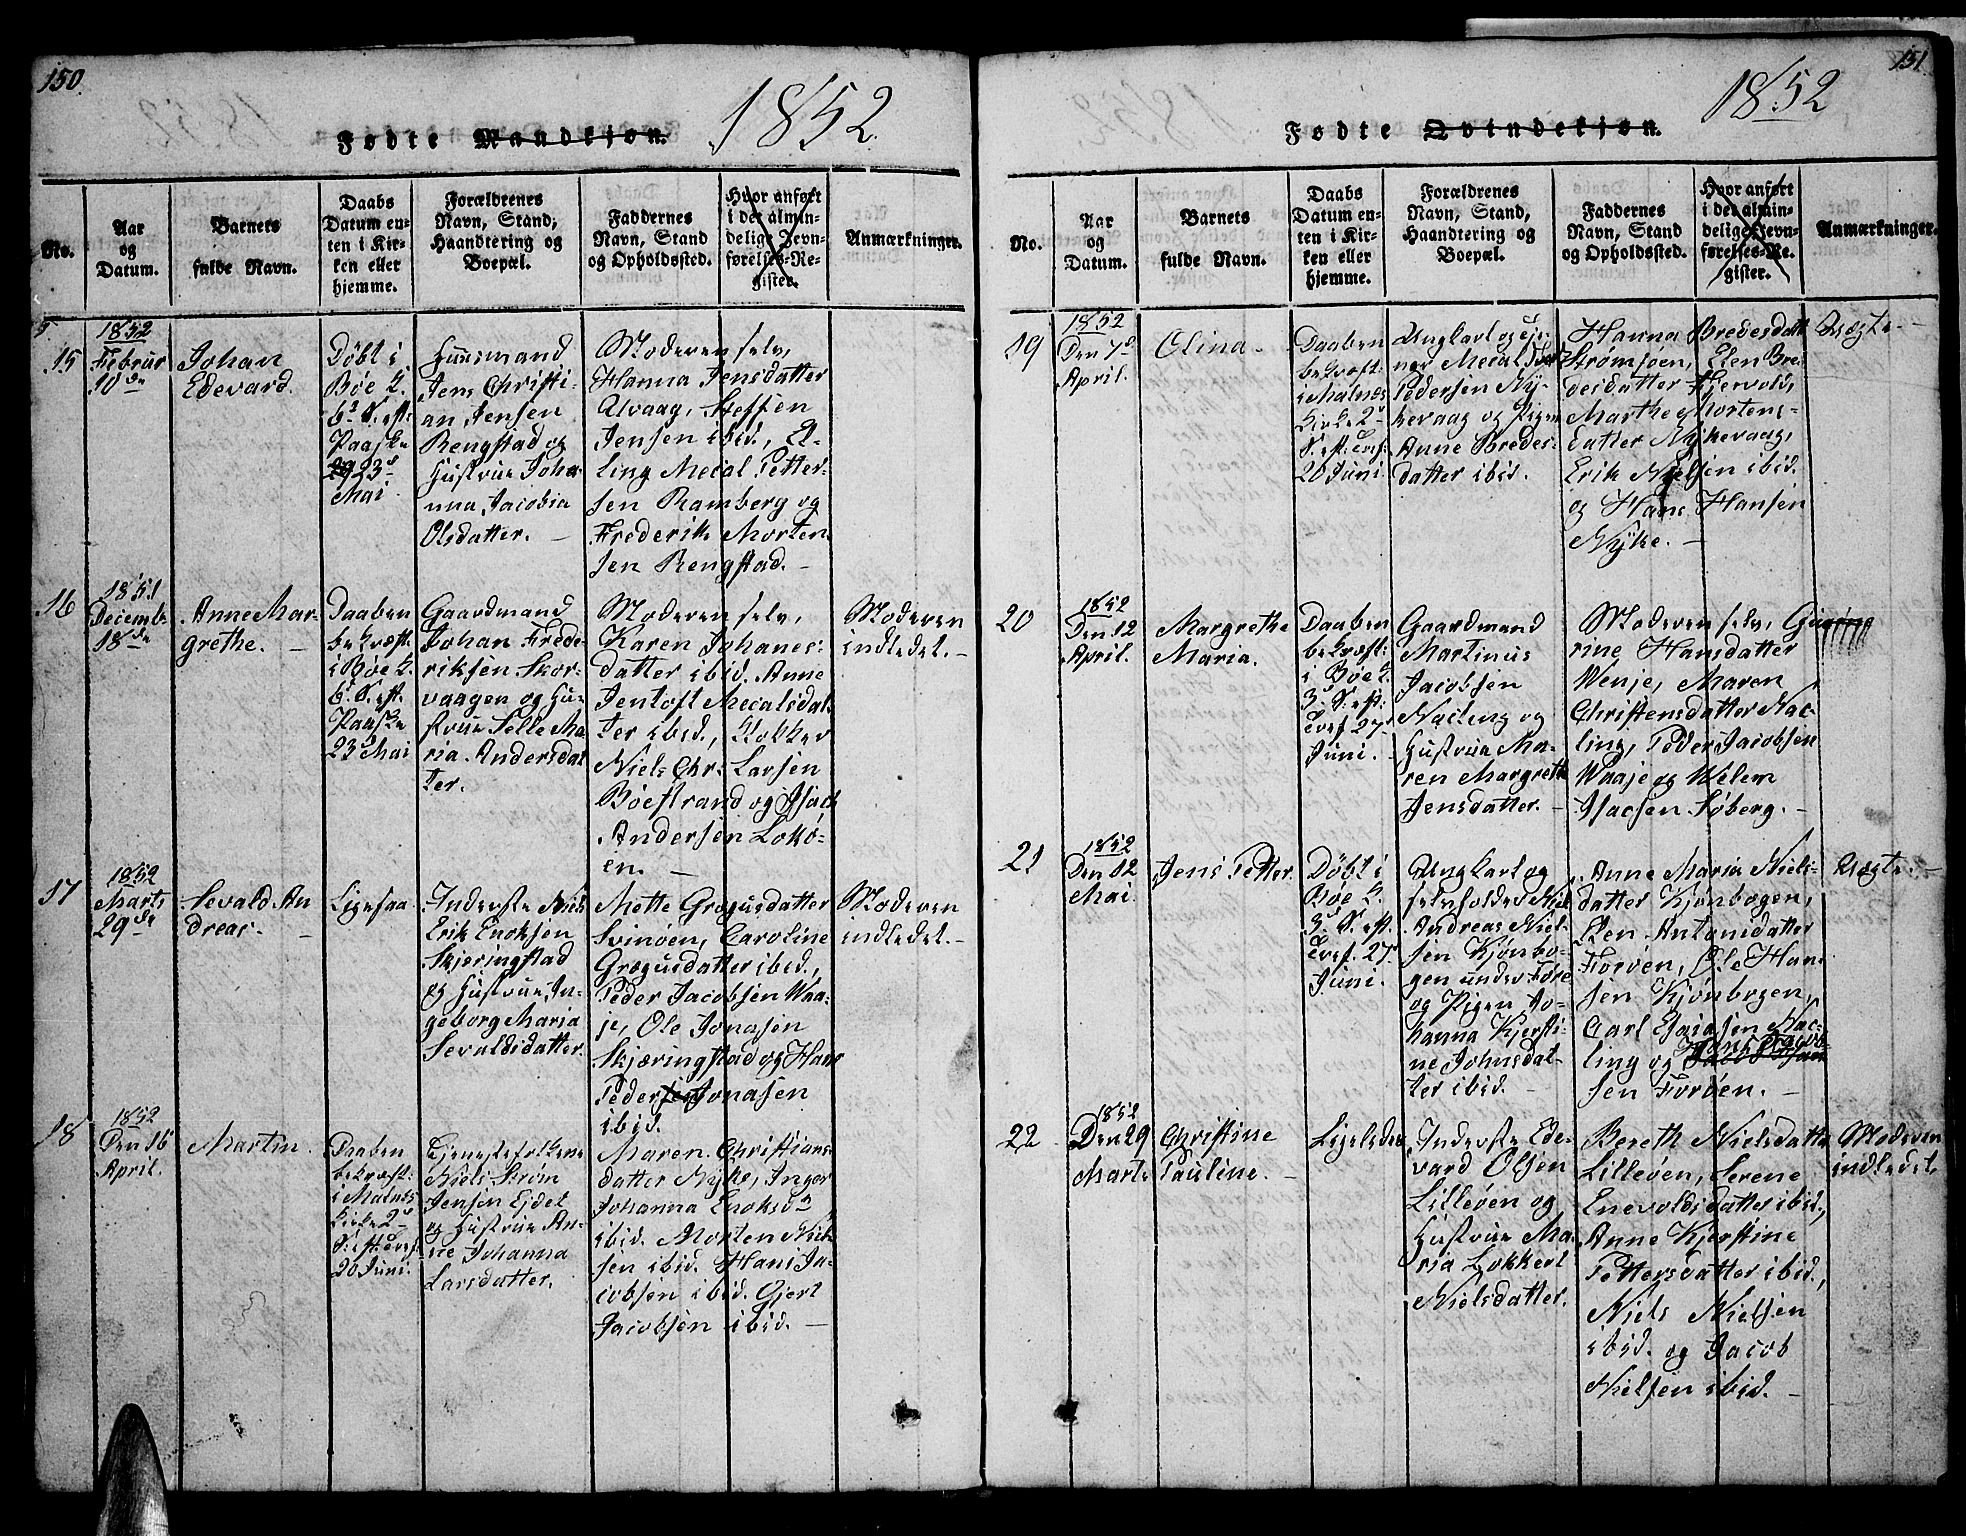 150.
Fødte Mandkjøn.
1852.
No.
Aar
og
Datum.
Barnets
fulde Navn.
Daabs
Datum en-
ten i Kir-
ken eller
hjemme.
Forældrenes
Navn, Stand,
Haandtering og
Boepæl.
Faddernes
Navn, Stand
og Opholdssted.
Hvor anført
i det almin-
delige Jevn-
førelses-Re-
gister.
Anmærkninger.
15
1852
Februar
10de
Johan
Edevard.
Døbt i
Bøe K.
6te S. eft.
Paaske
23d
Mai.
Huusmand
Jens Christi-
an Jensen
Rengstad og
Hustrue Joha-
nna Jacobia
Olsdatter.
Moderen selv,
Hanna Jensdatter
Alvaag, Steffen
Jensen ibid., El-
ling Mecal Petter-
sen Ramberg og
Frederik Morten-
sen Rengstad.
16
1851
Decemb.
18de
Anne Mar-
grethe.
Daaben
bekræft.
i Bøe K.
6te S. eft.
Paaske
23 Mai
Gaardmand
Johan Frede-
riksen Skor-
vaagen og Hu-
strue Selle Ma-
ria Andersdat-
ter.
Moderen selv,
Karen Johanes-
datter ibid. Anne
Jentoft Mecalsdat-
ter ibid., Klokker
Niels Chr. Larsen
Bøestrand og Isach
Andersen Lokø-
en.
Moderen
indledet.
17
1852
Marts
29de
Sevald An-
dreas.
Ligesaa
Inderste Niels
Erik Enoksen
Skjeringstad
og Hustrue In-
geborg Maria
Sevaldsdatter.
Mette Grøgusdatter
Svinøen, Caroline
Grøgusdatter ibid.,
Peder Jacobsen Waa-
je, Ole Jonasen
Skjæringstad og Hans
Peder Jonasen
ibid.
Moderen
indledet.
18
1852
Den 16
April.
Martin.
Daaben
bekræft:
i Malnes
Kirke 2d
S. eft. Tref.
20 Juni.
Tjenestefolkene
Niels Strøm
Jensen Ejdet
og Hustrue An-
ne Johanna
Larsdatter.
Maren Christians-
datter Nyke, Inger
Johanna Enoksdr
ibid. Morten Niel-
sen ibid. Hans Ja-
cobsen ibid. Gjert
Jacobsen ibid.
151.
Fødte Qvindekjøn.
1852
No.
Aar
og
Datum.
Barnets
fulde Navn.
Daabs
Datum en-
ten i Kir-
ken eller
hjemme.
Forældrenes
Navn, Stand,
Haandtering og
Boepæl.
Faddernes
Navn, Stand
og Opholdssted.
Hvor anført
i det almin-
delige Jevn-
førelses-Re-
gister.
Anmærkninger.
19
1852
Den 7d
April.
Olina.
Daaben
bekræft:
i Malnes
Kirke 2d
S. eft. Tref.
20 Juni.
Ungkarl og eje-
ner Mecal
Pedersen Ny-
kevaag og Pigen
Anne Bredes-
datter ibid.
Hanna Bredesdatt.
Strømsøen, Elen Bre-
desdatter Fjervold,
Marthe Mortens-
datter Nykevaag,
Erik Nielsen ibid.
og Hans Hansen
Nyke.
Uægte.
20
1852
Den 12
April.
Margrethe
Maria.
Daaben
bekræft:
i Bøe K.
3d S. eft:
Tref 27d
Juni.
Gaardmand
Martinus
Jacobsen
Vacling og
Hustrue Ma-
ren Margreth
Jensdatter.
Moderen selv,
rine Hansdatter
Wenje, Maren
Christensdatter Vac-
ling, Peder Jacobsen
Waaje og Welem
Isacsen Søberg.
21
1852
Den 12
Mai.
Jens Petter.
Døbt i
Bøe K.
3d S. eft.
Tref. 27d
Juni.
Ungkarl og
selvfolder Niel
Andreas Niel-
sen Kjønbo-
gen under Føre
og Pigen Jo-
hanna Kjersti-
ne Johnsdat-
ter ibid.
Anne Maria Niels-
datter Kjønbogen,
Elen Antonsdatter
Forøen, Ole Han-
sen Kjønbogen,
Carl Esaiasen Vac-
ling og
sen Forøen.
Uægte.
22
1852
Den 29
Marts
Christine
Pauline.
Ligeledes
Inderste Ede-
vard Olsen
Lilleøen og
Hustrue Ma-
ria Lokkert
Nielsdatter.
Bereth Nielsdatter
Lilleøen, Serene
Enevoldsdatter ibid.,
Anne Kjerstine
Pettersdatter ibid.,
Niels Nielsen
ibid. og Jacob
Nielsen ibid.
Moderen
indledet